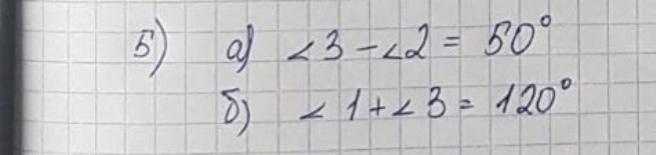 5) а) ∠3 - ∠2 = 50°
б) ∠1 + ∠3 = 120°